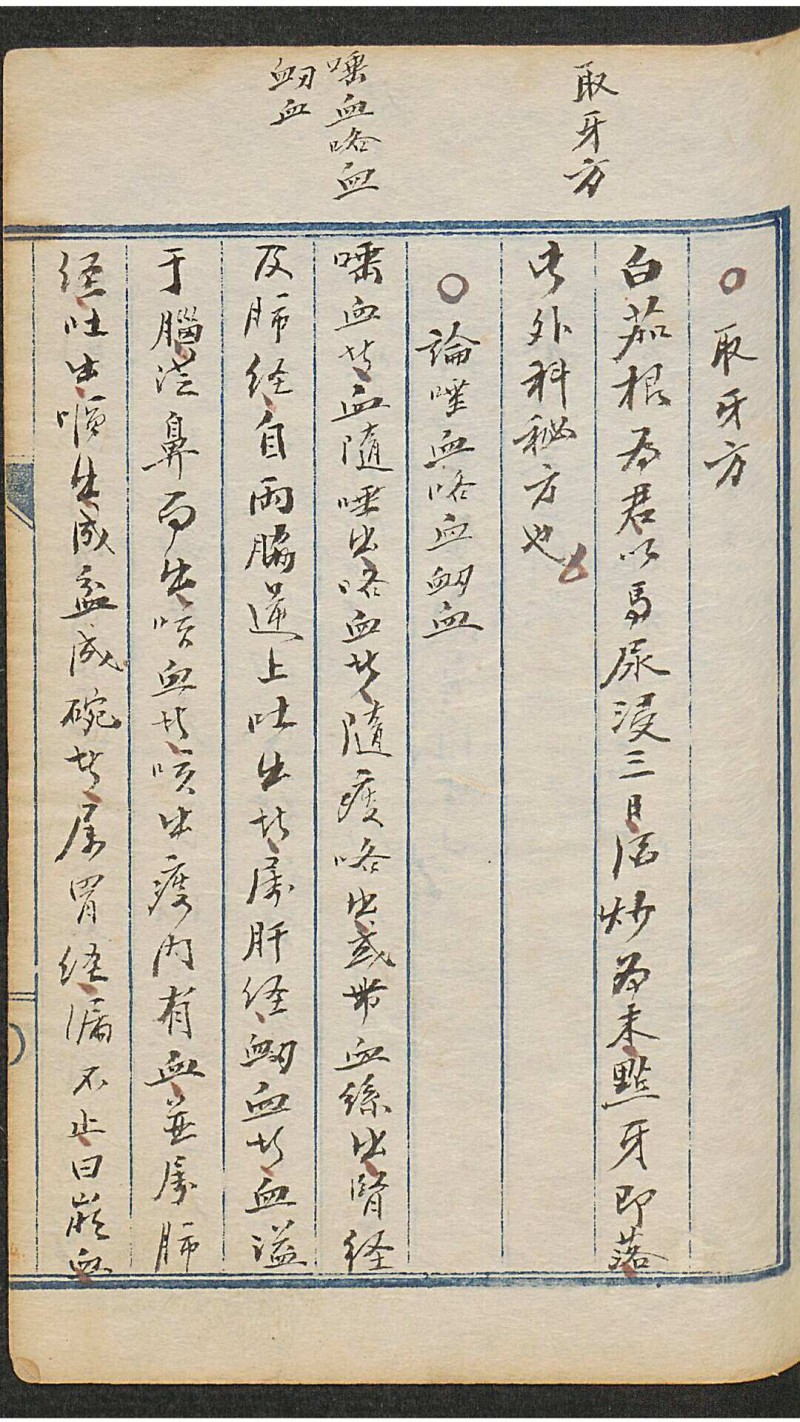 取牙方
唾血咯血
衂血
○取牙方
白茄根為君以馬尿浸三日后炒為末點牙即落
此外科秘方也
○論唾血咯血衂血
唾血者血隨唾出咯血者隨痰咯出或帶血絲出腎経
及肺経自両脇逆上吐出者屬肝経衂血者血溢
于腦従鼻而出咳血者咳出痰内有血並屬肺
経吐出嘔出成盆成碗者屬胃経漏不止曰